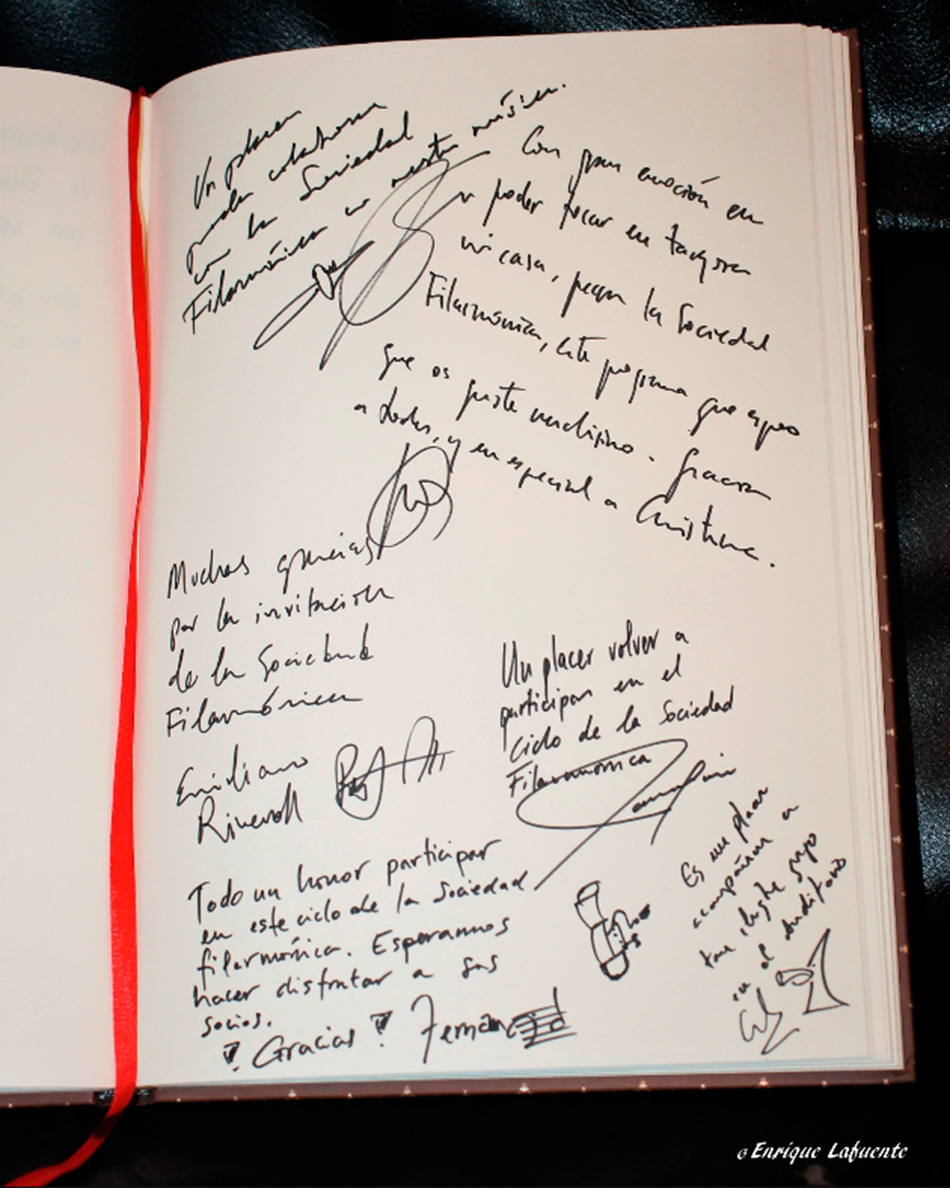 Un placer
poder colaborar
con la Sociedad
Filarmónica con nuestra música.
Con gran emoción en
poder tocar en
mi casa, para la Sociedad
Filarmónica, este programa que espero
que os guste muchísimo. Gracias
a todos, y en especial a Cristina.
Muchas gracias
por la invitación
de la Sociedad
Filarmónica
Emiliano
Un placer volver a
participar en el
ciclo de la Sociedad
Filarmónica
Todo un honor participar
en este ciclo de la Sociedad
filarmónica. Esperamos
hacer disfrutar a sus
socios.
¡Gracias! Fernando
Es un placer
acompañar a
tan ilustre grupo
en el Auditorio
© Enrique Lafuente